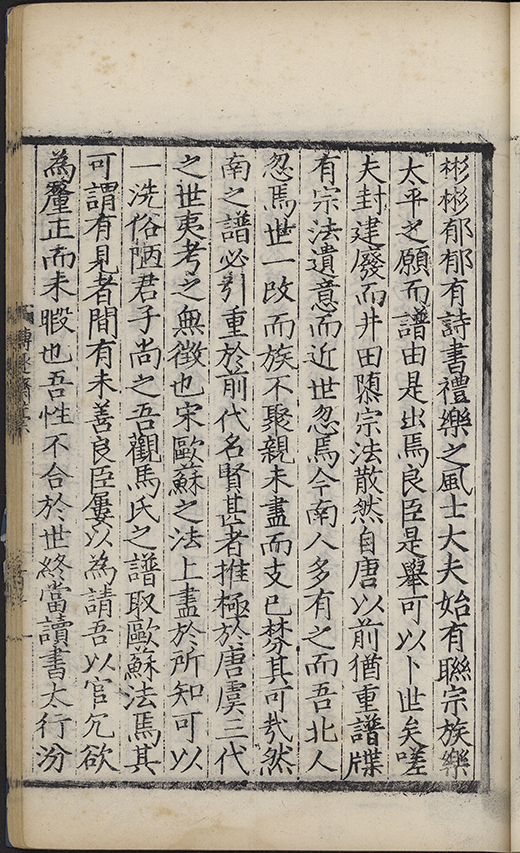 彬彬郁郁有詩書禮樂之風士大夫始有聯宗族樂
太平之願而譜由是出焉良臣是舉可以卜世矣嗟
夫封建廢而井田隳宗法散然自唐以前猶重譜牒
有宗法遺意而近世忽焉今南人多有之而吾北人
忽焉世一改而族不聚親未盡而支已棼其可㢤然
南之譜必引重於前代名賢甚者推極於唐虞三代
之世夷考之無徵也宋歐蘇之法上盡於所知可以
一洗俗陋君子尚之吾觀馬氏之譜取歐蘇法焉其
可謂有見者間有未善良臣屢以為請吾以官冗欲
為釐正而未暇也吾性不合於世終當讀書太行汾